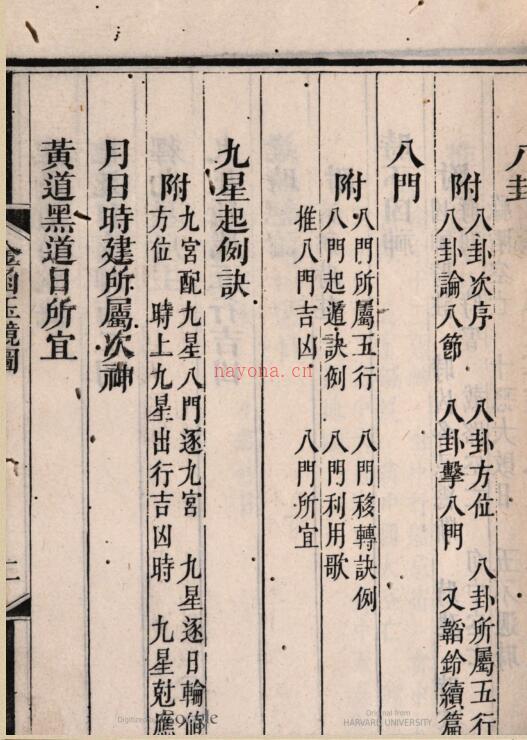 八卦
附
八卦次序 八卦方位 八卦所屬五行
八卦論八節 八卦擊八門 又韜鈐續篇
八門
附
八門所屬五行 八門移轉訣例
八門起道訣例 八門利用歌
推八門吉凶 八門所宜
九星起例訣
附
九宮配九星八門逐九宮 九星逐日輪
方位 時上九星出行吉凶時 九星尅應
月日時建所屬次神
黃道黑道日所宜
金函玉鏡圖
二
nayona.cn
Digitized by Google
Original from
HARVARD UNIVERSITY